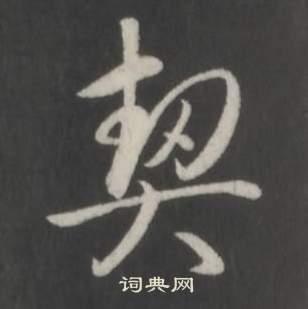 契
词典网